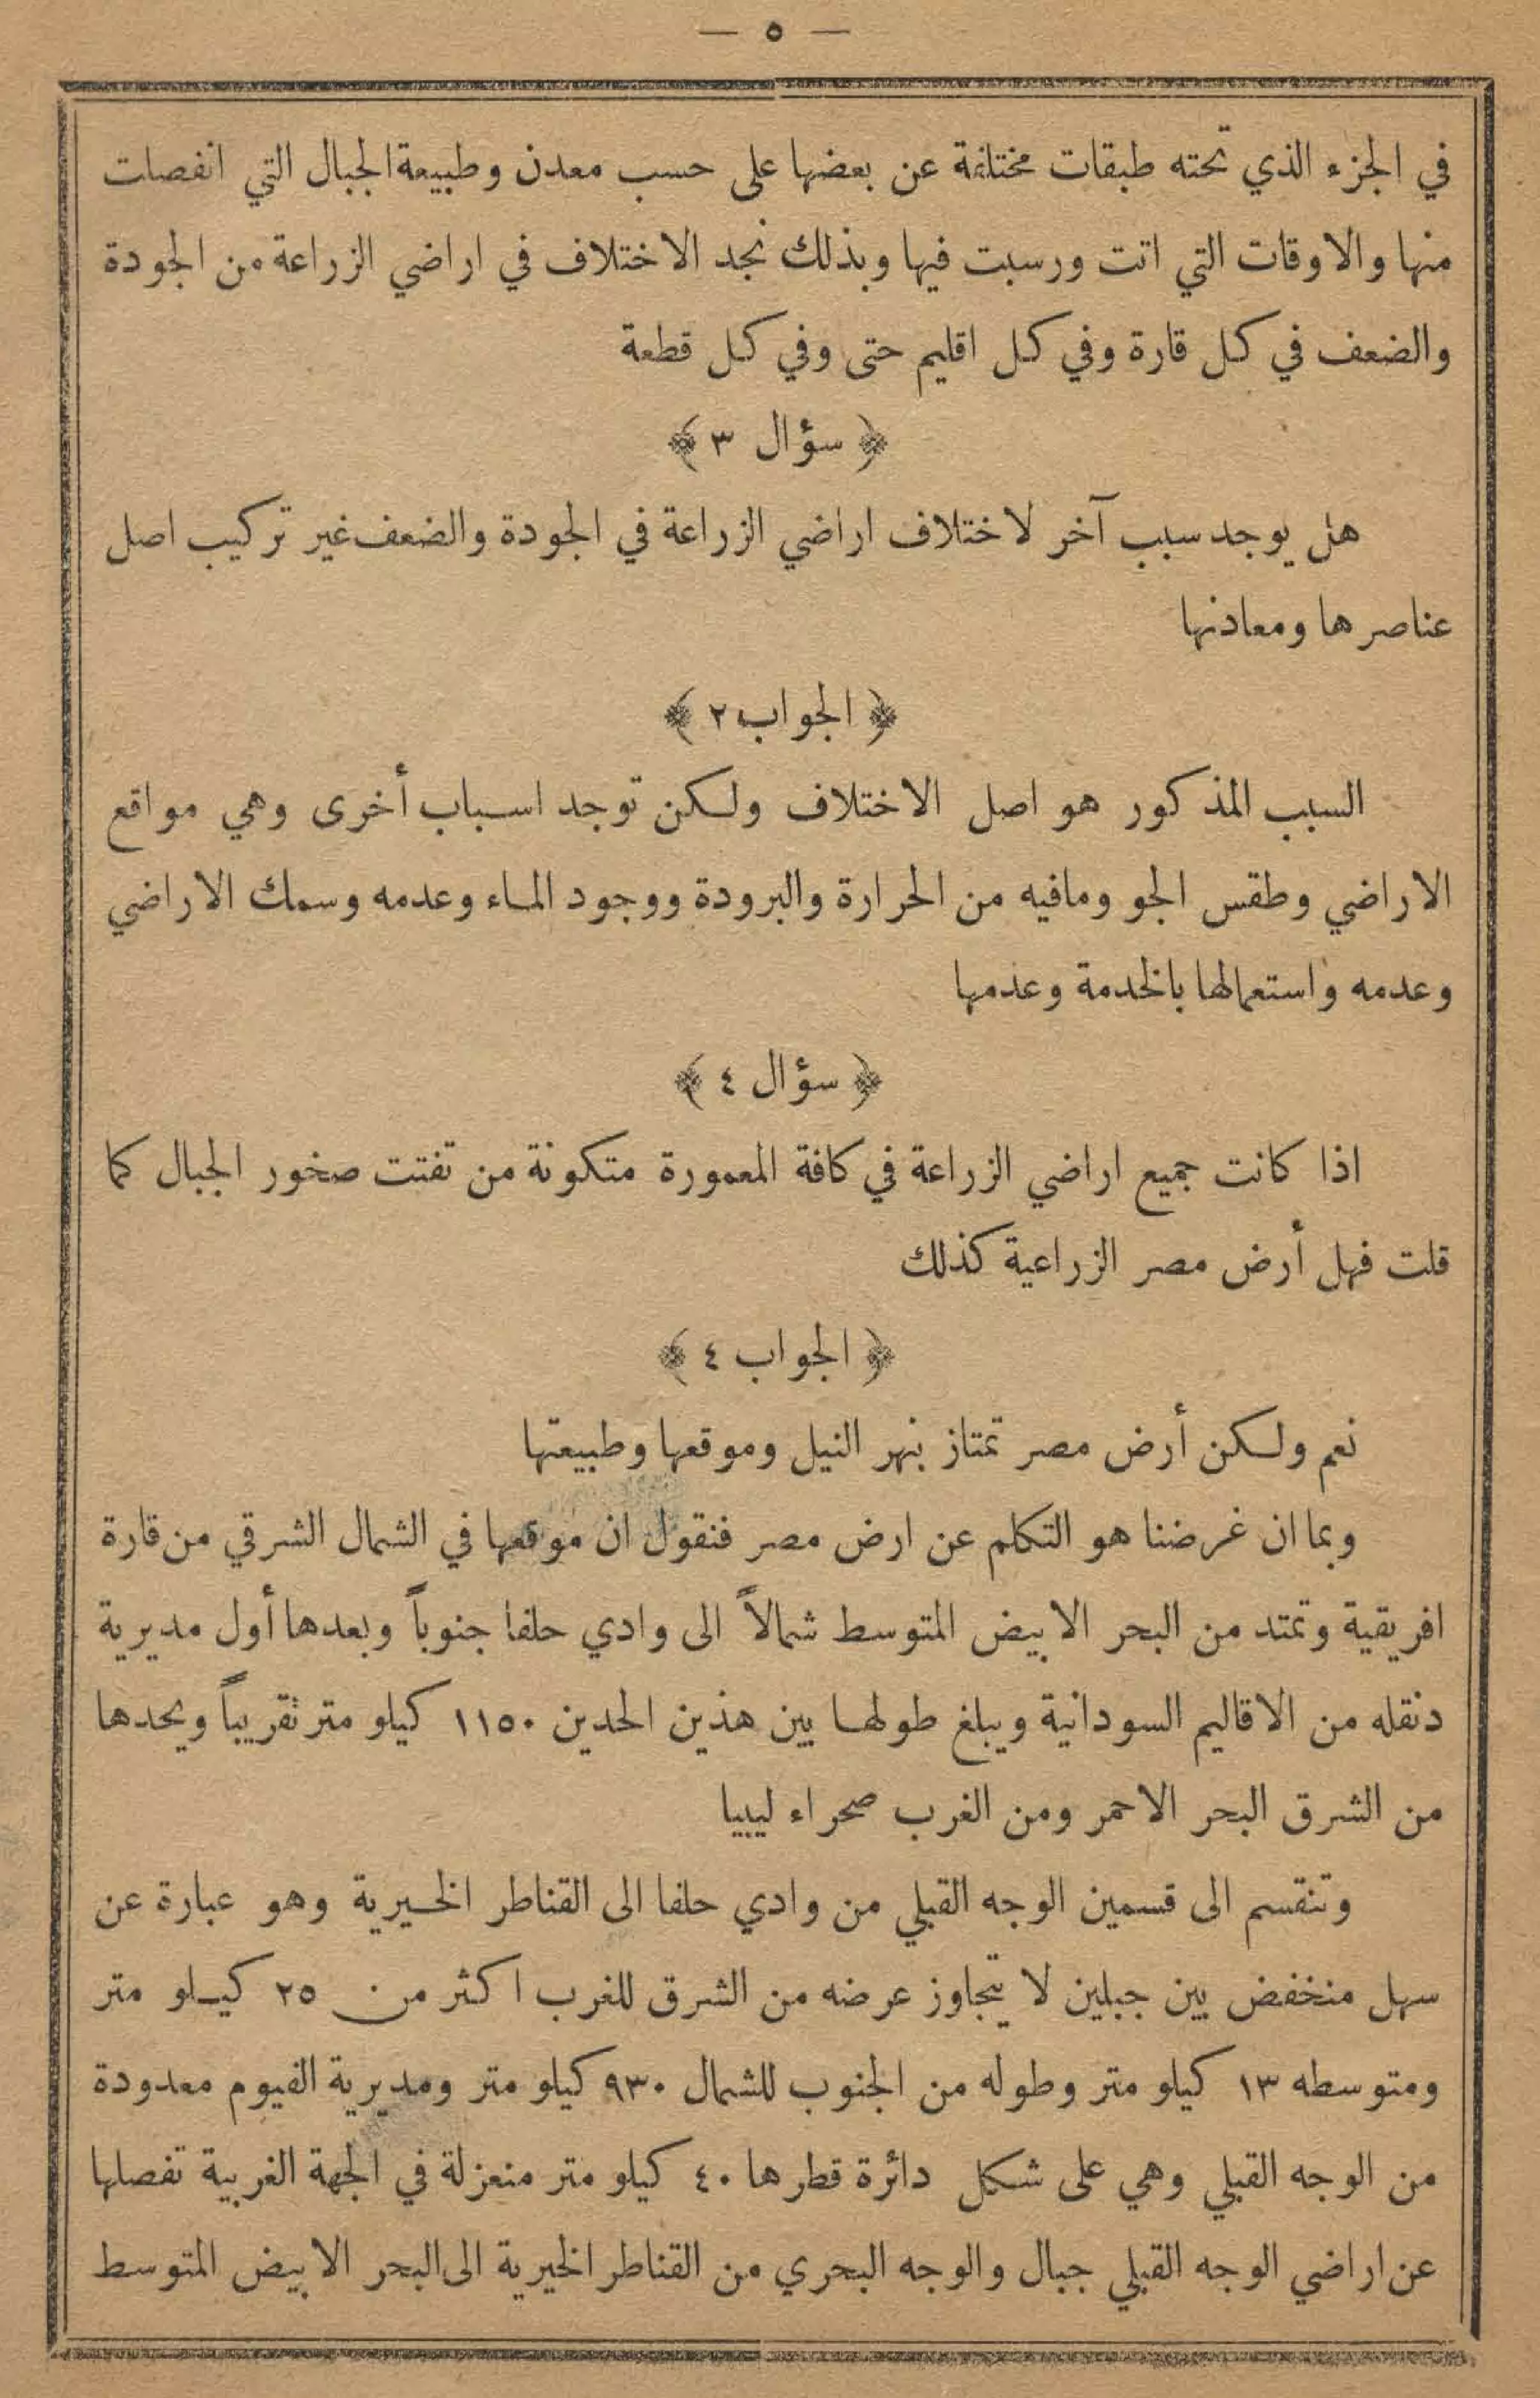 — ٥ —
في الجزء الذي تحته طبقات مختلفة عن بعضها على حسب معدن وطبيعة الجبال التي انفصلت
منها والاوقات التي اتت ورسبت فيها وبذلك نجد الاختلاف في اراضي الزراعة من الجودة
والضعف في كل قارة وفي كل اقليم حتى وفي كل قطعة
﴿ سؤال ٣ ﴾
هل يوجد سبب آخر لاختلاف اراضي الزراعة في الجودة والضعف غير تركيب اصل
عناصرها ومعادنها
﴿ الجواب ٢ ﴾
السبب المذكور هو اصل الاختلاف ولكن توجد اسباب أخرى وهي مواقع
الاراضي وطقس الجو ومافيه من الحرارة والبرودة ووجود الماء وعدمه وسمك الاراضي
وعدمه واستعمالها بالخدمة وعدمها
﴿ سؤال ٤ ﴾
اذا كانت جميع اراضي الزراعة في كافة المعمورة متكونة من تفتت صخور الجبال كما
قلت فهل أرض مصر الزراعية كذلك
﴿ الجواب ٤ ﴾
نعم ولكن أرض مصر تمتاز بنهر النيل وموقعها وطبيعتها
وبما ان غرضنا هو التكلم عن ارض مصر فنقول ان موقعها في الشمال الشرقي من قارة
افريقية وتمتد من البحر الابيض المتوسط شمالاً الى وادي حلفا جنوباً وبعدها أول مديرية
دنقله من الاقاليم السودانية ويبلغ طولها بين هذين الحدين ١١٥٠ كيلو متر تقريباً ويحدها
من الشرق البحر الاحمر ومن الغرب صحراء ليبيا
وتنقسم الى قسمين الوجه القبلي من وادي حلفا الى القناطر الخيرية وهو عبارة عن
سهل منخفض بين جبلين لا يتجاوز عرضه من الشرق للغرب اكثر من ٢٥ كيلو متر
ومتوسطه ١٣ كيلو متر وطوله من الجنوب للشمال ٩٣٠ كيلو متر ومديرية الفيوم معدودة
من الوجه القبلي وهي على شكل دائرة قطرها ٤٠ كيلو متر منعزلة في الجهة الغربية تفصلها
عن اراضي الوجه القبلي جبال والوجه البحري من القناطر الخيرية الى البحر الابيض المتوسط